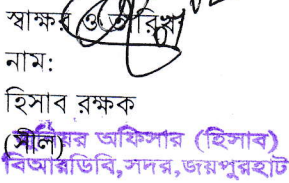 স্বাক্ষর ও তারিখ
নাম:
হিসাব রক্ষক
(সীল)
সিনিয়র অফিসার (হিসাব)
বিআরডিবি,সদর,জয়পুরহাট